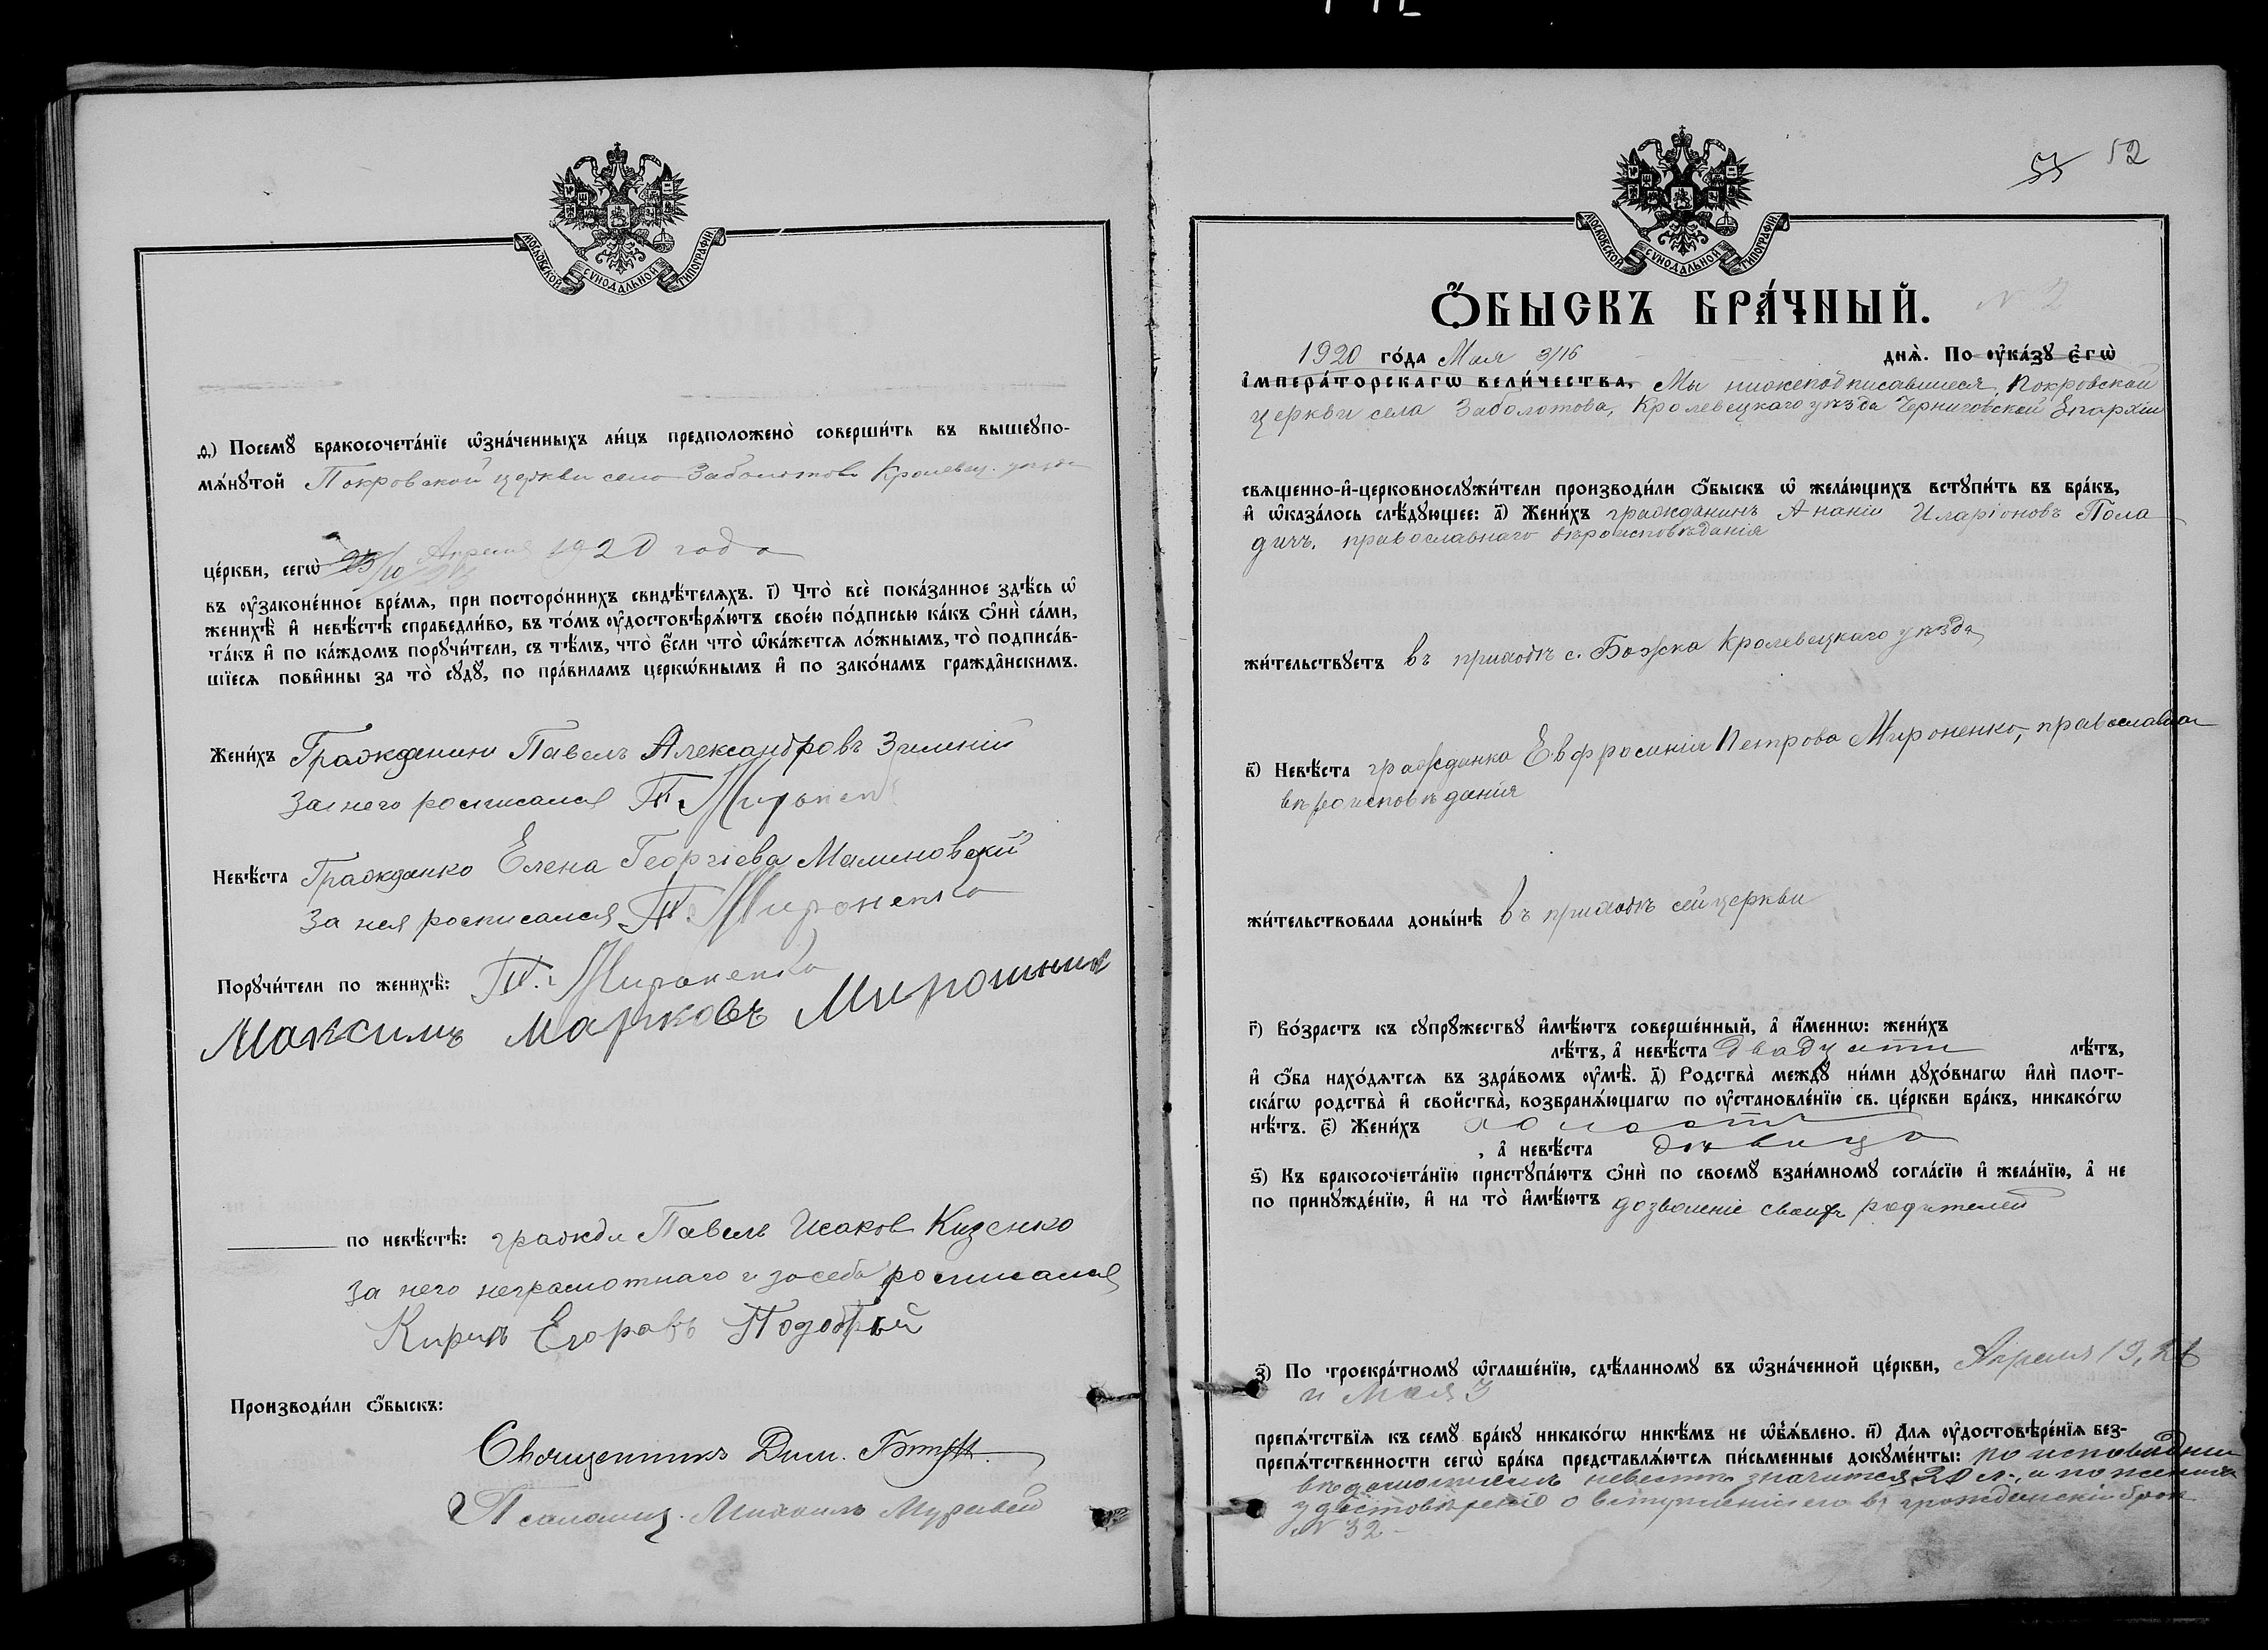 МОСКОВСКОЙ СѴНОДАЛЬНОЙ ТИПОГРАФІИ
д) Посемꙋ бракосочета́нїе ѡ҆зна́ченныхъ ли́цъ предположено̀ соверши́ть въ вышеꙋпо-
мѧ́нꙋтой Покровской церкви село Заболотово Кролевец. уезда
це́ркви, сегѡ̀ Апреля 1920 года
въ ᲂу҆законе́нное вре́мѧ, при посторо́ннихъ свидѣ́телѧхъ. і҃) Что̀ всѐ пока́занное здѣ́сь ѡ҆
женихѣ̀ и҆ невѣ́стѣ справедли́во, въ то́мъ ᲂу҆достовѣрѧ́ютъ свое́ю по́дписью ка́къ ѻ҆нѝ са́ми,
та́къ и҆ по ка́ждомъ порꙋчи́тели, съ тѣ́мъ, что̀ є҆́сли что̀ ѡ҆ка́жетсѧ ло́жнымъ, то̀ подписа́в-
шїесѧ пови́нны за то̀ сꙋдꙋ̀, по пра́виламъ церкѡ́внымъ и҆ по зако́намъ гражда́нскимъ.
Жени́хъ Гражданинъ Павелъ Александровъ Зимній
За него росписался П. Мироненко
Невѣ́ста Гражданка Елена Георгіева Малиновской
За нея росписался П. Мироненко
Порꙋчи́тели по женихѣ̀: П. Мироненко
Максимъ Марковъ Мирошник
по невѣ́стѣ: гражд. Павелъ Исаков Кизенко
За него неграмотнаго и за себя росписался
Кирилъ Егоровъ
Производи́ли ѻ҆́быскъ:
Священникъ Дим.
Псаломщ. Михаилъ Муравей
52
МОСКОВСКОЙ СѴНОДАЛЬНОЙ ТИПОГРАФІИ
Ѻ҆́БЫСКЪ БРА́ЧНЫЙ. N 2
1920 го́да Мая 3/16 днѧ̀. По ᲂу҆ка́зꙋ Є҆гѡ̀
І҆мпера́торскагѡ вели́чества, Мы нижеподписавшиеся, Покровской
церкви села Заболотова, Кролевецкаго уѣзда Черниговской Епархіи
свѧще́нно-и҆-церковнослꙋжи́тели производи́ли ѻ҆́быскъ ѡ҆ жела́ющихъ встꙋпи́ть въ бра́къ,
и҆ ѡ҆каза́лось слѣ́дꙋющее: а҃) Жени́хъ гражданинъ Ананій Иларіоновъ Пола
дичъ, православнаго вѣроисповѣданія
жи́тельствꙋетъ въ приходѣ с. Божка Кролевецкаго уѣзда
в҃) Невѣ́ста гражданка Евфросинія Петрова Мироненко, православнаго
вѣроисповѣданія
жи́тельствовала доны́нѣ въ приходѣ сей церкви
г҃) Во́зрастъ къ сꙋпрꙋ́жествꙋ и҆мѣ́ютъ соверше́нный, а҆ и҆́меннѡ: жени́хъ
лѣ́тъ, а҆ невѣ́ста двадцати лѣ́тъ,
и҆ ѻ҆́ба нахо́дѧтсѧ въ здра́вомъ ᲂу҆мѣ̀. д҃) Родства̀ междꙋ̀ ни́ми дꙋхо́внагѡ и҆лѝ плот-
ска́гѡ родства̀ и҆ сво́йства̀, возбранѧ́ющагѡ по ᲂу҆становле́нїю св. це́ркви бра́къ, никако́гѡ
нѣ́тъ. є҃) Жени́хъ холостъ
, а҆ невѣ́ста дѣвица
ѕ҃) Къ бракосочета́нїю пристꙋпа́ютъ ѻ҆нѝ по своемꙋ̀ взаи́мномꙋ согла́сїю и҆ жела́нїю, а҆ не
по принꙋжде́нїю, и҆ на то̀ и҆мѣ́ютъ дозволеніе своихъ родителей
з҃) По троекра́тномꙋ ѡ҆глаше́нїю, сдѣ́ланномꙋ въ ѡ҆зна́ченной це́ркви, Апреля 19, 26
и Мая 3
препѧ́тствїѧ къ семꙋ̀ бра́кꙋ никако́гѡ никѣ́мъ не ѡ҆б̾ѧ́влено. и҃) Для ᲂу҆достовѣре́нїѧ без-
препѧ́тственности сегѡ̀ бра́ка представлѧ́ютсѧ пи́сьменные докꙋме́нты: по исповѣднымъ
вѣдомостямъ невѣстѣ значится 20 л., и по женихѣ
удостовѣреніе о вступленіи его въ гражданскій брак
N 32